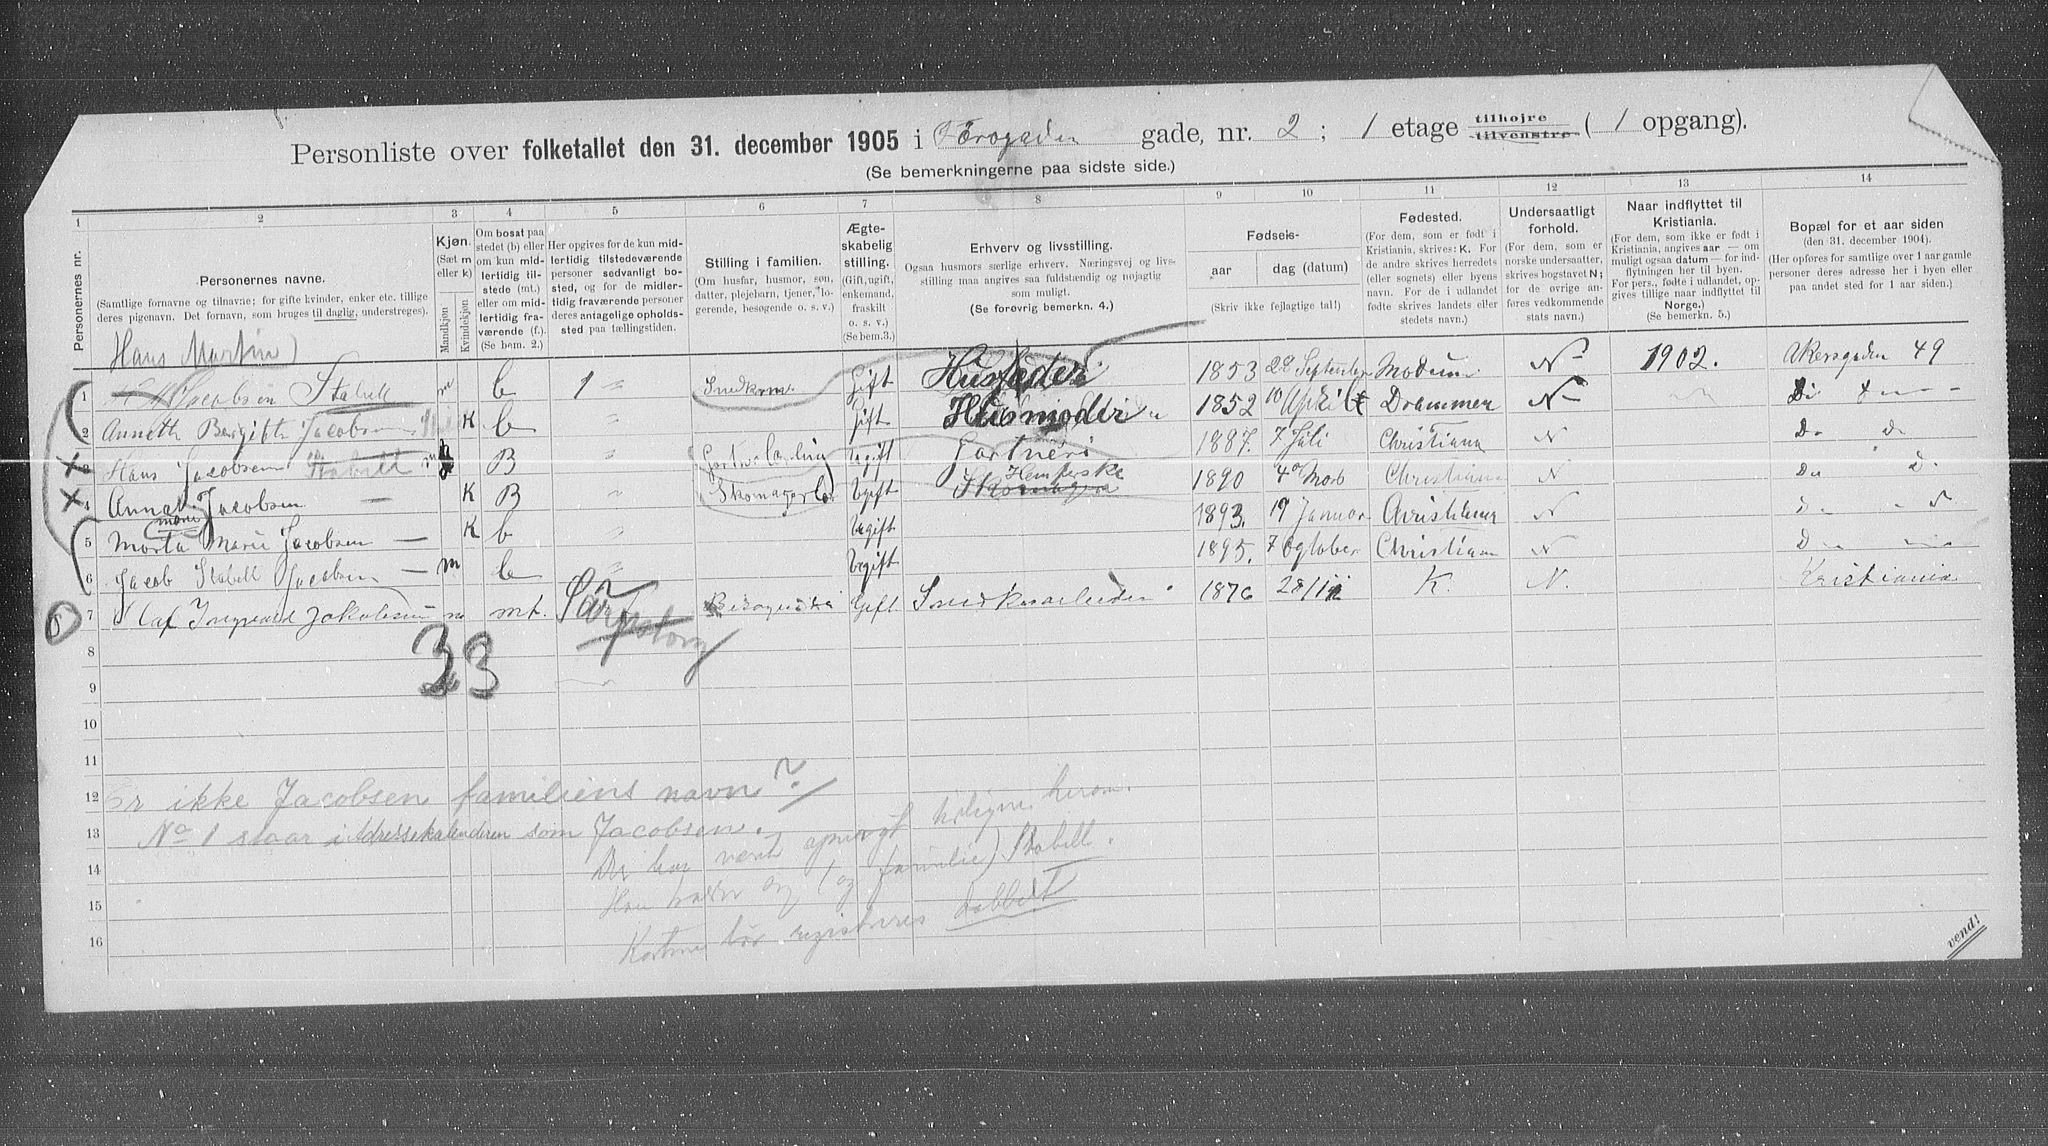 Personliste over folketallet den 31. december 1905 i Færogaden gade, nr. 2; 1 etage tilhøjre tilvenstre ( 1 opgang).
(Se bemerkningerne paa sidste side.)
1 2 3 4 5 6 7 8 9 10 11 12 13 14
Personernes nr.
Personernes navne.
(Samtlige fornavne og tilnavne; for gifte kvinder, enker etc. tillige deres pigenavn. Det fornavn, som bruges til daglig, understreges).
Kjøn.
(Sæt m eller k)
Mandkjøn
Kvindekjøn
Om bosat paa stedet (b) eller om kun midlertidig tilstede (mt.) eller om midlertidig fraværende (f.)
(Se bem. 2.)
Her opgives for de kun midlertidig tilstedeværende personer sedvanligt bosted, og for de midlertidig fraværende personer deres antagelige opholdssted paa tællingstiden.
Stilling i familien.
(Om husfar, husmor, søn, datter, plejebarn, tjener, logerende, besøgende o. s. v.)
Ægteskabelig stilling.
(Gift, ugift, enkemand, fraskilt o. s. v.)
(Se bem. 3.)
Erhverv og livsstilling.
Ogsaa husmors særlige erhverv. Næringsvej og livsstilling maa angives saa fuldstændig og nøjagtig som muligt.
(Se forøvrig bemerkn. 4.)
Fødsels-
aar
dag (datum)
(Skriv ikke fejlagtige tal!)
Fødested.
(For dem, som er født i Kristiania, skrives: K. For de andre skrives herredets (eller sognets) eller byens navn. For de i udlandet fødte skrives landets eller stedets navn.)
Undersaatligt forhold.
(For dem, som er norske undersaatter, skrives bogstavet N; for de øvrige anføres vedkommende stats navn.)
Naar indflyttet til Kristiania.
(For dem, som ikke er født i Kristiania, angives aar — om muligt ogsaa datum — for indflytningen her til byen. For pers., fødte i udlandet, opgives tillige naar indflyttet til Norge.)
(Se bemerkn. 5.)
Bopæl for et aar siden
(den 31. december 1904).
(Her opføres for samtlige over 1 aar gamle personer deres adresse her i byen eller paa andet sted for 1 aar siden.)
Hans Martin
1 Jacobsen Stabell m b 1 " Snedker Gift Husfader 1853 September Modum N 1902. Akersgaden 49
2 Annette Bergitte Jacobsen K b " Gift Husmoder 1852 10 April Drammen N
3 Hans Jacobsen Stabell m B " Ugift Gartneri 1887. 7 Juli Christiana N Do Do
4 Anna Jacobsen — K B " Ugift 1890 Christiana N Do D.
5 Marta Marie Jacobsen — K b " Ugift 1893. 19 Januar Christiana N
6 Jacob Stabell Jacobsen — m b " Ugift 1895. 7 October Christiana N D
7 Olaf Ingvald Jakobsen m mt. Sarpsborg Besøgende Gift Snedkerarbeider 1876 28/11 K. N. Kristiania
33
8
9
10
11
12 Er ikke Jacobsen familiens navn?
13 No 1 staar i Adressekalenderen som Jacobsen.
Der har været spurgt heromme
14 Han kalder sig (og familie) Stabell.
15
Kortene bør registreres dobbelt
16
vend!